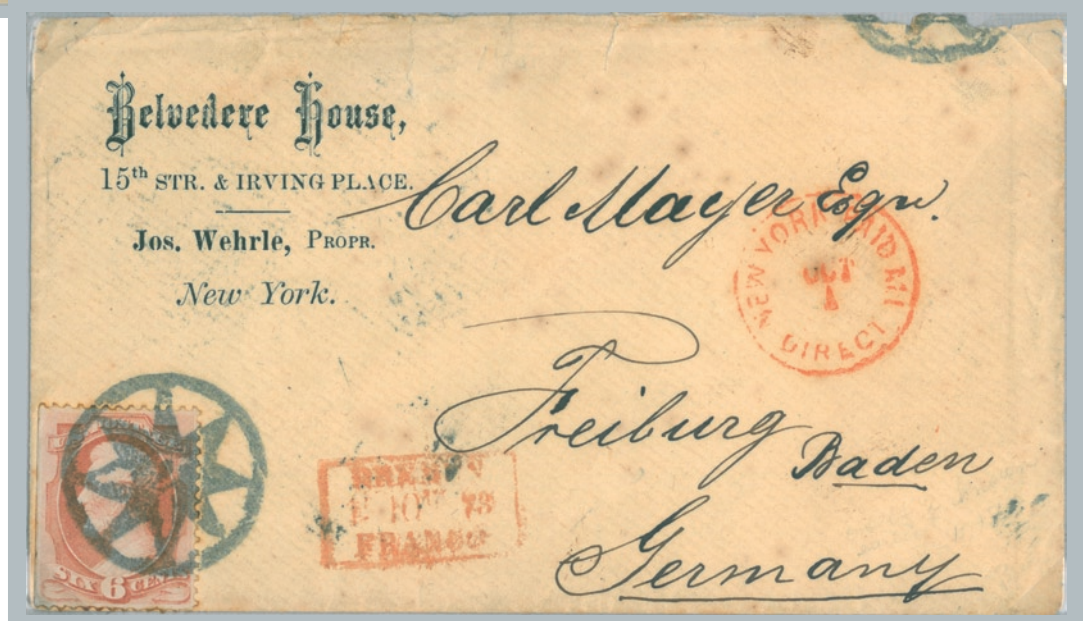 Belvedere House,
15th STR. & IRVING PLACE.
Jos. Wehrle, PROPR.
New York.
Carl Mayer Esqr.
NEW YORK PAID ALL
DIRECT
OCT
1
Freiburg
Baden
Germany
BREMEN
10 73
FRANCO
SIX 6 CENTS